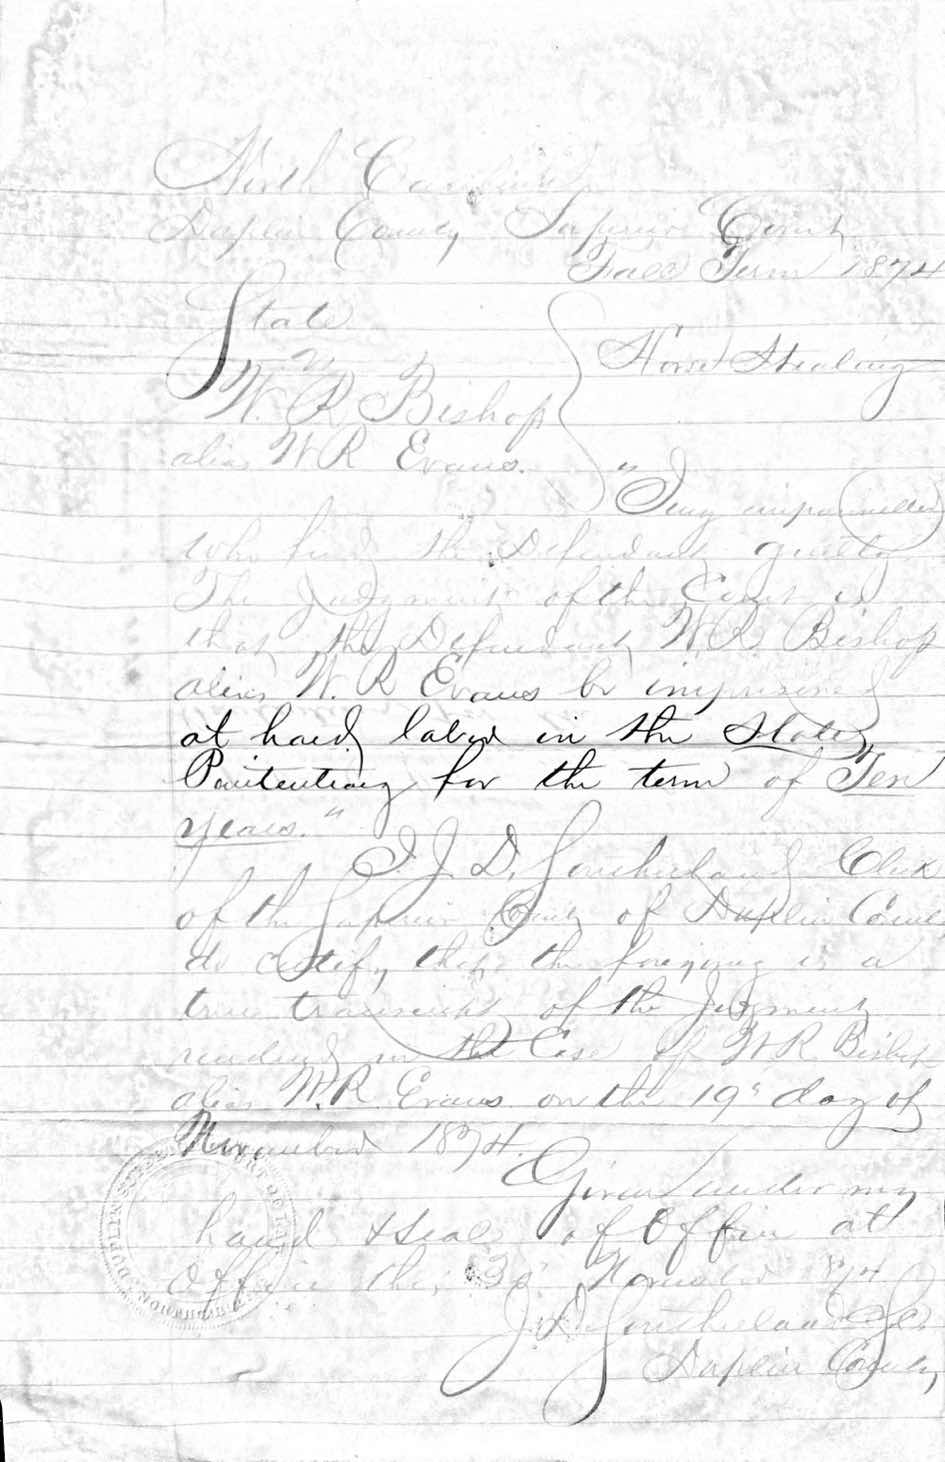 North Carolina
Duplin County Superior Court
Fall Term 1874
State
vs
W. R. Bishop
alias W R Evans.
Horse Stealing
"Jury impannelled
who find the Defendant guilty
The Judgment of the Court is
that the Defendant W R Bishop
alias W. R Evans be imprisoned
at hard labor in the State
Penitentiary for the term of Ten
years."
I J. D. Southerland Clerk
of the Superior Court of Duplin County
do certify that the foregoing is a
true transcript of the Judgment
rendered in the Case of W R. Bishop
alias W. R. Evans on the 19" day of
November 1874.
Given under my
hand & seal of Office at
Office this November 74
J. D. Southerland
Duplin County